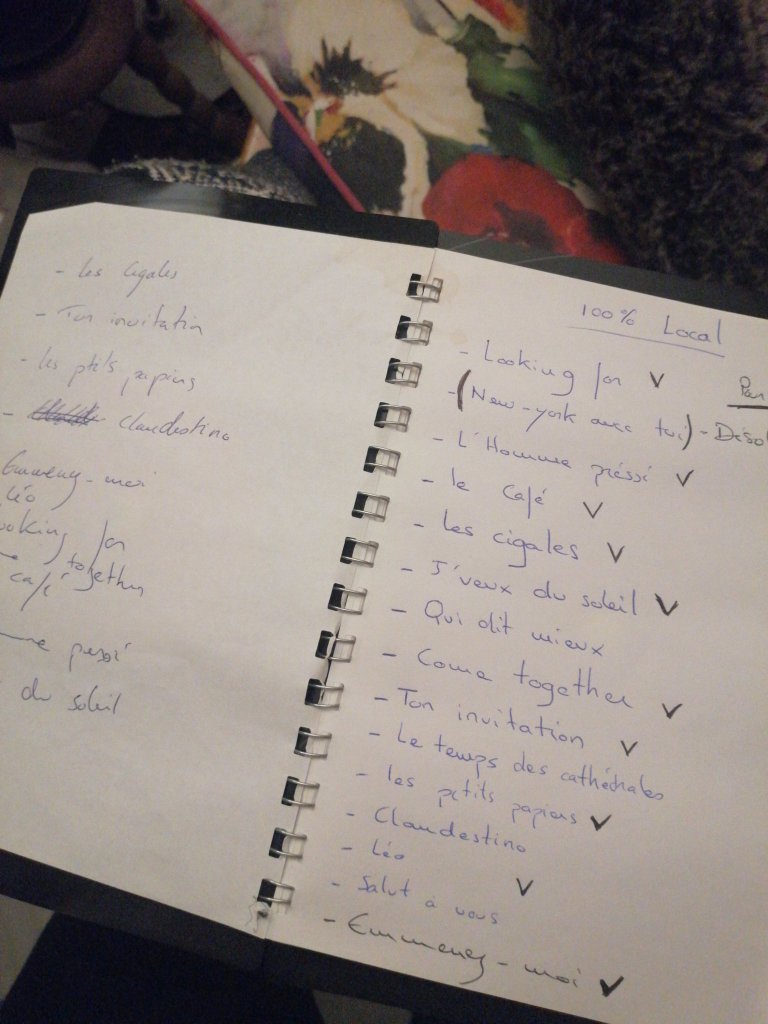 - Les Cigales
- Ton invitation
- les ptits papiers
- Clandestino
Emmenez-moi
Léo
ooking for
together
café
pressé
du soleil
100% Local
- Looking for ✓
- (New-york avec toi) - Déso
- L'Homme préssé ✓
- le Café ✓
- Les cigales ✓
- J'veux du soleil ✓
- Qui dit mieux
- Come together ✓
- Ton invitation ✓
- Le temps des cathédrales
- les petits papiers ✓
- Clandestino
- Léo ✓
- Salut à vous
- Emmenez-moi ✓